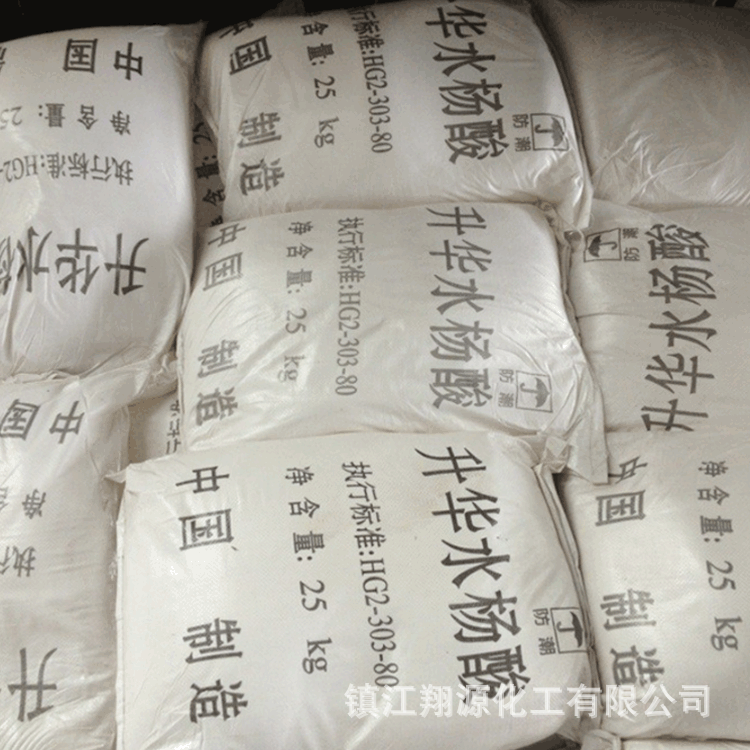 中国
净含量: 25
执行标准:HG2-
升华水杨
中国 制造
含量: 25 kg
执行标准:HG2-303-80
升华水杨酸
防潮
中国 制造
净含量: 25 kg
执行标准:HG2-303-80
升华水杨酸
防潮
防潮
升华水杨酸
中国
净
执行
升
中国 制造
净含量: 25 kg
执行标准:HG2-303-80
升华水杨酸
防潮
中国 制造
净含量: 25 kg
镇江翔源化工有限公司